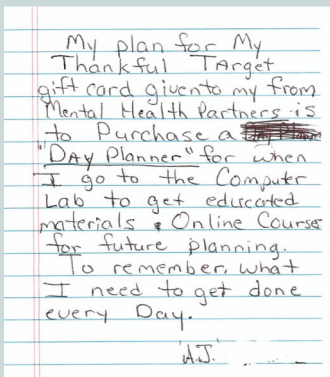 My plan for My
Thankful TArget
gift card givento my from
Mental Health Partners is
to Purchase a
"DAY Planner" for when
I go to the Computer
Lab to get educated
materials & Online Course
for future planning.
To remember, what
I need to get done
every Day.
"A.J."